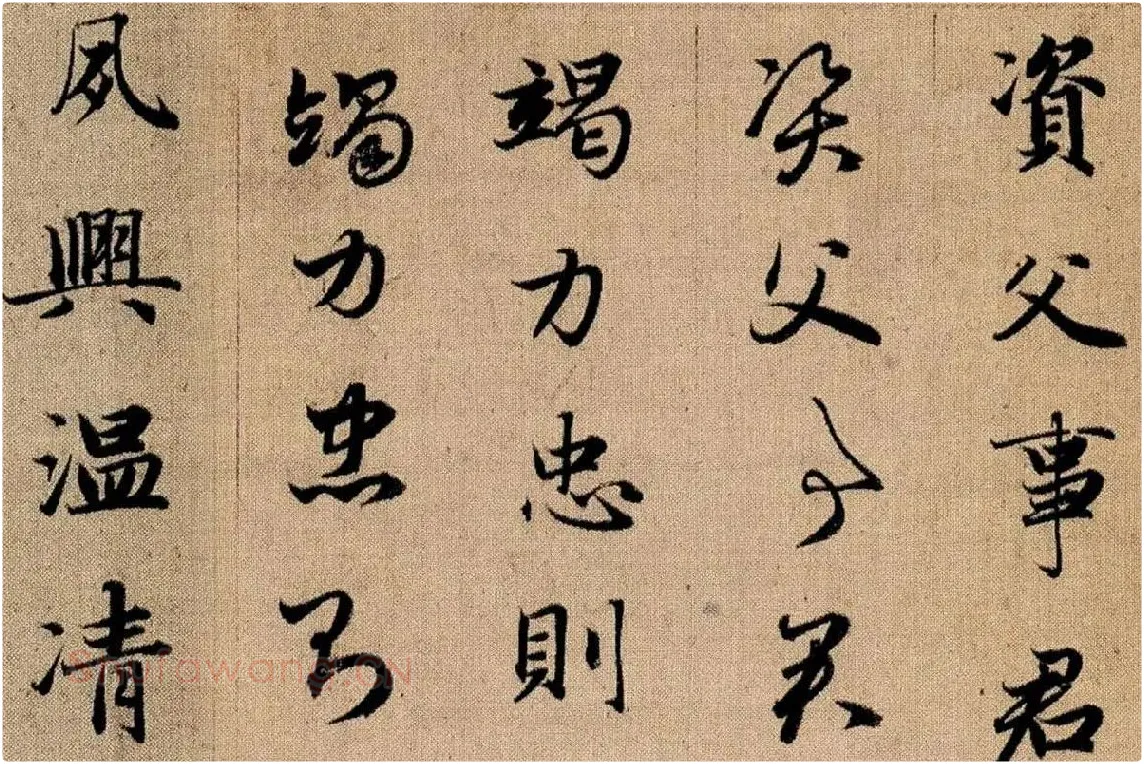 資父事君
資父事君
竭力忠則
竭力忠則
夙興温凊
Shufawang.CN